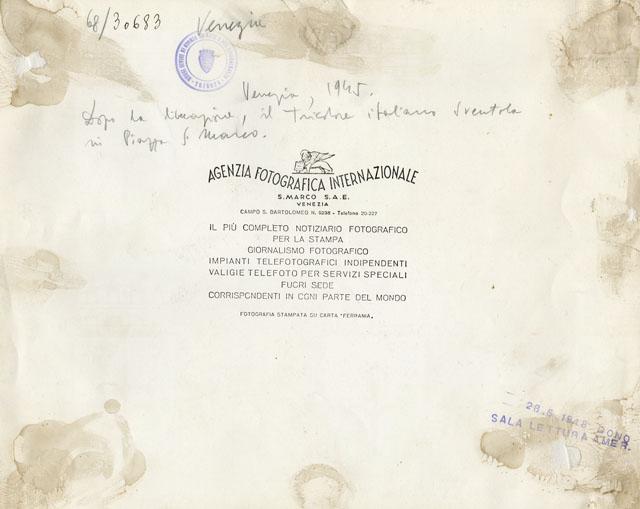 68/30683 Venezia
Venezia, 1945.
Dopo la liberazione, il Tricolore italiano sventola
in Piazza S. Marco.
AGENZIA FOTOGRAFICA INTERNAZIONALE
S. MARCO S.A.E.
VENEZIA
CAMPO S. BARTOLOMEO N. 5396 - Telefono 20-227
IL PIÙ COMPLETO NOTIZIARIO FOTOGRAFICO
PER LA STAMPA
GIORNALISMO FOTOGRAFICO
IMPIANTI TELEFOTOGRAFICI INDIPENDENTI
VALIGIE TELEFOTO PER SERVIZI SPECIALI
FUORI SEDE
CORRISPONDENTI IN OGNI PARTE DEL MONDO
FOTOGRAFIA STAMPATA SU CARTA "FERRANIA"
DONO
SALA LETTURA AMER.